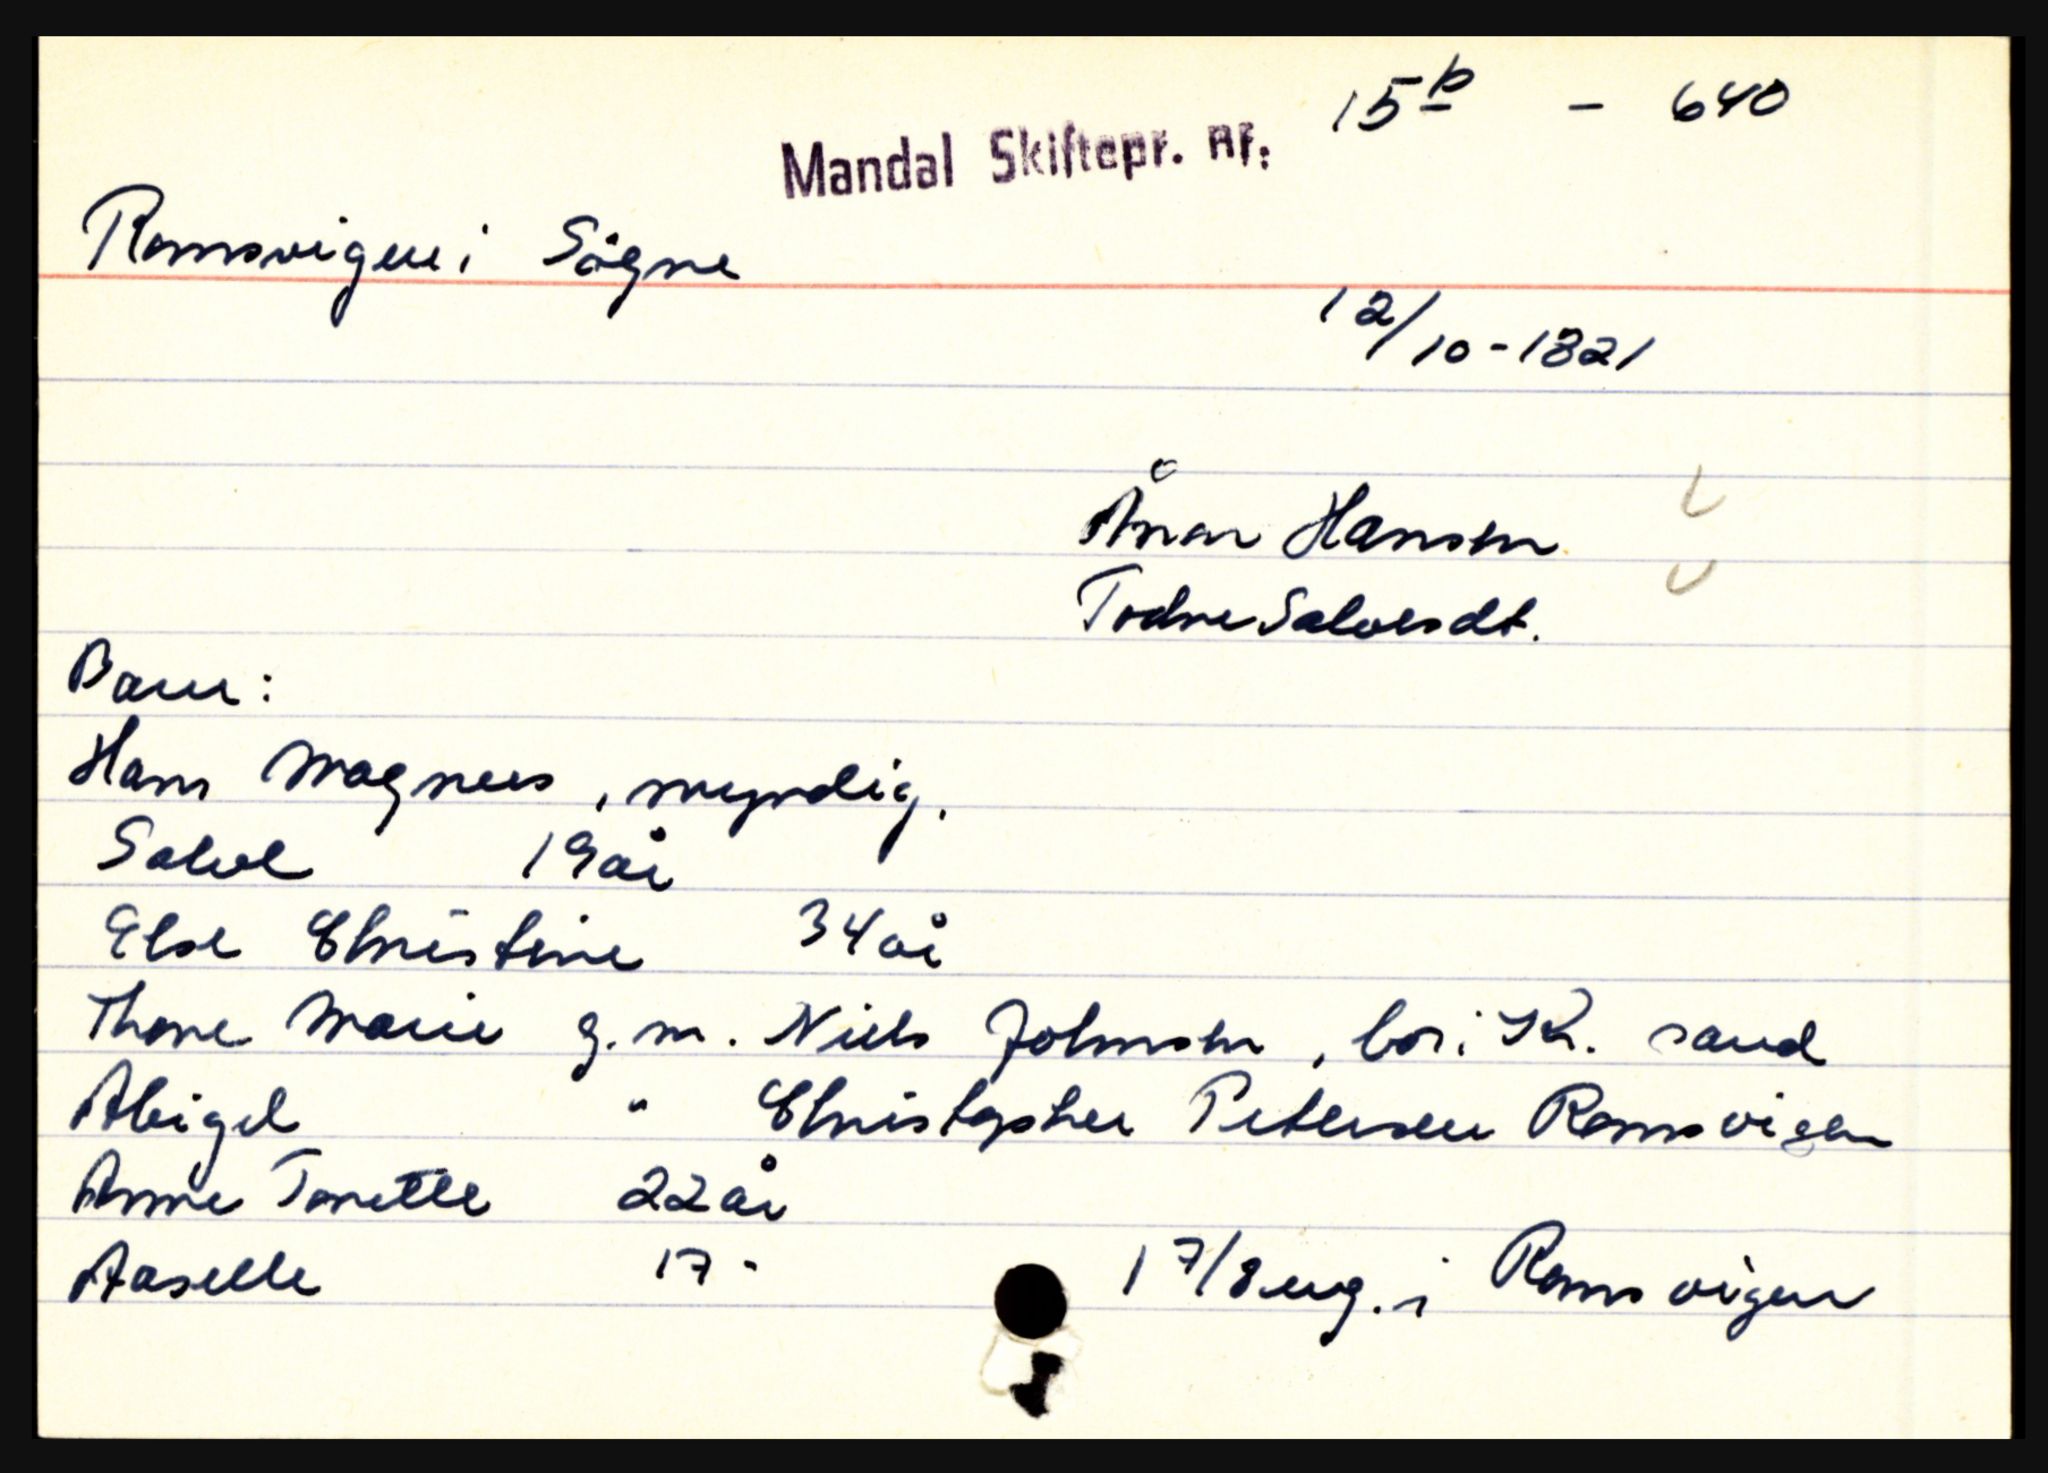 15b - 640
Mandal Skiftepr. nr:
Romsvigen i Søgne
12/10-1821
Ånon Hansen
Todne Salvesdt.
Barn:
Hans Magnus, myndig.
Salve 19 år
Else Christine 34 år
Thone Marie g.m. Niels Johnsen, bor i Kr. sand
Abigel " Christopher Petersen Romsvigen
Anne Tonette 22 år
Aaselle 17 -
1 7/8 eng. i Romsvigen